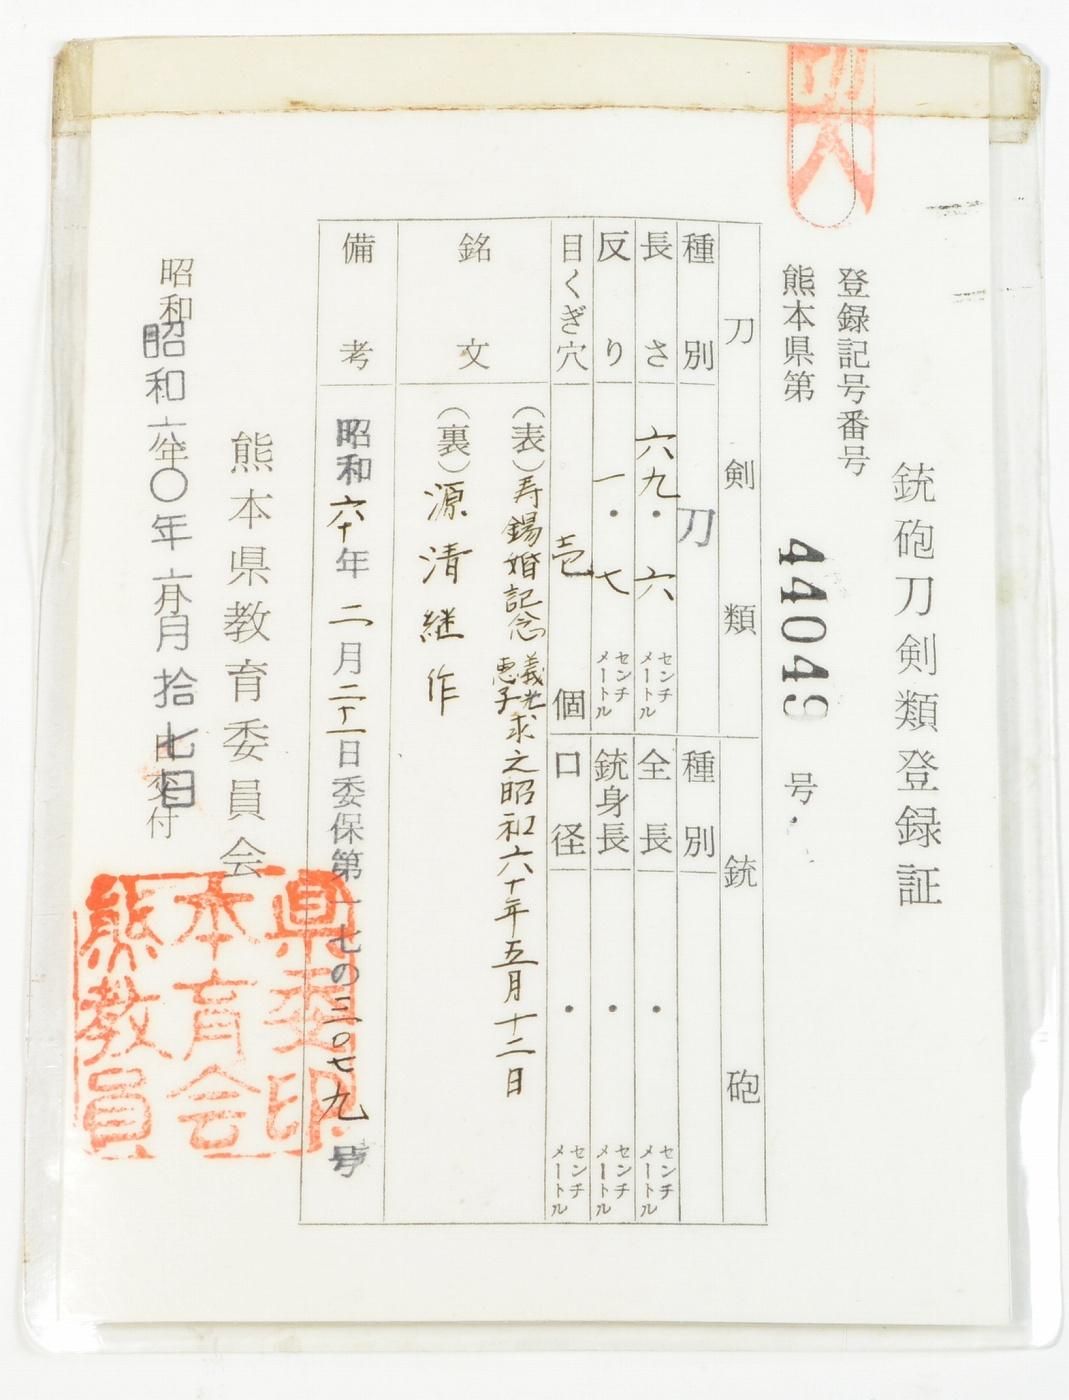 銃砲刀剣類登録証
登録記号番号
熊本県第 44049 号
刀剣類
種別 刀
長さ 六九・六 センチメートル
反り 一・七 センチメートル
目くぎ穴 壱 個
銘文
(表)寿錫婚記念 義光 恵子 求之昭和六十年五月十二日
(裏)源清継作
銃砲
種別
全長 ・ センチメートル
銃身長 ・ センチメートル
口径 ・ センチメートル
備考 昭和六十年二月二十一日委保第一七の三〇七九号
熊本県教育委員会
昭和六〇年六月拾七日
交付
熊本県教育委員会印